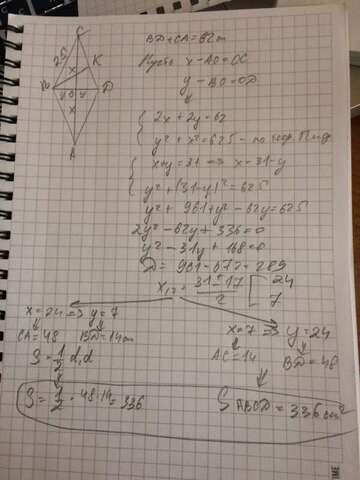 C
25
x
K
B
y
O
y
D
x
A
BD + CA = 62cm
Пусть x - AO = OC
y - BO = OD
2x + 2y = 62
y² + x² = 625 - по теор. Пиф.
x + y = 31 => x = 31 - y
y² + (31 - y)² = 625
y² + 961 + y² - 62y = 625
2y² - 62y + 336 = 0
y² - 31y + 168 = 0
D = 961 - 672 = 289
x₁,₂ = (31 ± 17)/2 [ 24
7
x = 24 => y = 7
CA = 48 BD = 14cm
S = 1/2 d₁d₂
S = 1/2 · 48 · 14 = 336
x = 7 => y = 24
AC = 14 BD = 48
S ABCD = 336 cm²